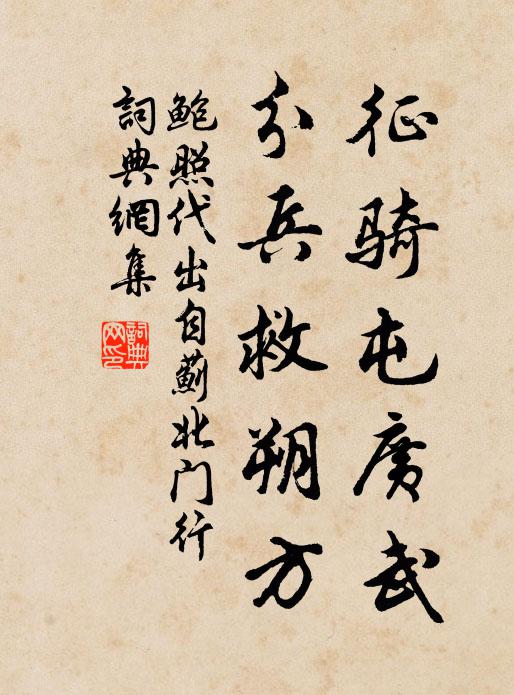 征骑屯廣武
分兵救朔方
鲍照代出自薊北门行
詞典網集
詞典网印